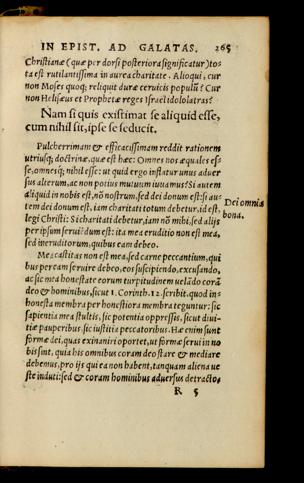 IN EPIST. AD GALATAS. 265
Christianæ (quæ per dorsi posteriora significatur) to-
ta est rutilantissima in aurea charitate. Alioqui, cur
non Moses quoq; reliquit duræ ceruicis populū? Cur
non Helisæus et Prophetæ reges Israel idololatras?
Nam si quis existimat se aliquid esse,
cum nihil sit, ipse se seducit.
Pulcherrimam & efficacissimam reddit rationem
utriusq; doctrinæ, quæ est hæc: Omnes nos æquales es-
se, omnesq; nihil esse: ut quid ergo inflatur unus aduer
sus alterum, ac non potius mutuum iuuamus? Si autem
aliquid in nobis est, nō nostrum, sed dei donum est: si au-
tem dei donum est, iam charitati totum debetur, id est,
legi Christi: Si charitati debetur, iam nō mihi, sed alijs
per ipsum seruiēdum est: ita mea eruditio non est mea,
sed ineruditorum, quibus eam debeo.
Dei omnia
bona.
Mea castitas non est mea, sed carne peccantium, qui
bus per eam seruire debeo, eos suscipiendo, excusando,
ac sic mea honestate eorum turpitudinem uelādo corā
deo & hominibus, sicut 1. Corinth. 12. scribit, quod in-
honesta membra per honestiora membra teguntur: sic
sapientia mea stultis, sic potentia oppressis, sicut diui-
tiæ pauperibus, sic iustitia peccatoribus. Hæ enim sunt
formæ dei, quas exinaniri oportet, ut formæ serui in no
bis sint, quia his omnibus coram deo stare & mediare
debemus, pro ijs qui ea non habent, tanquam aliena ue
ste induti: sed & coram hominibus aduersus detracto-
R 5